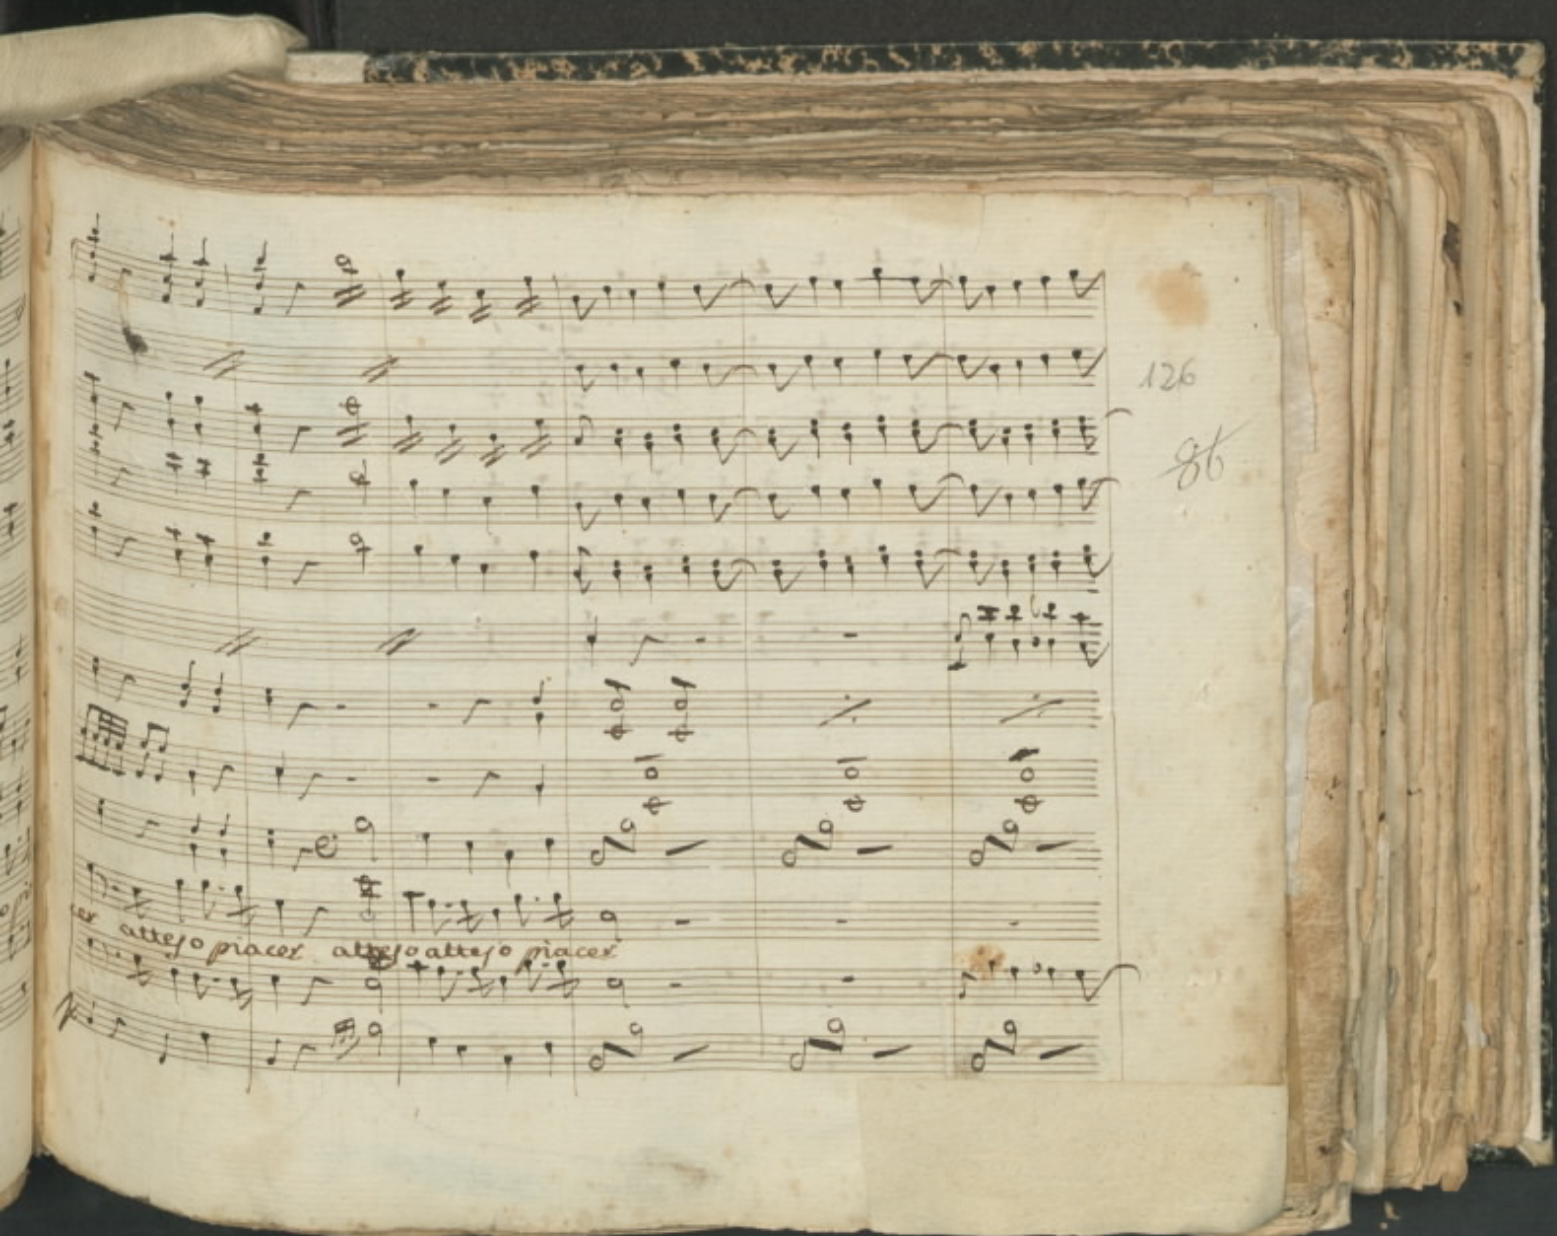 126
86
cer atteso piacer atteso atteso piacer